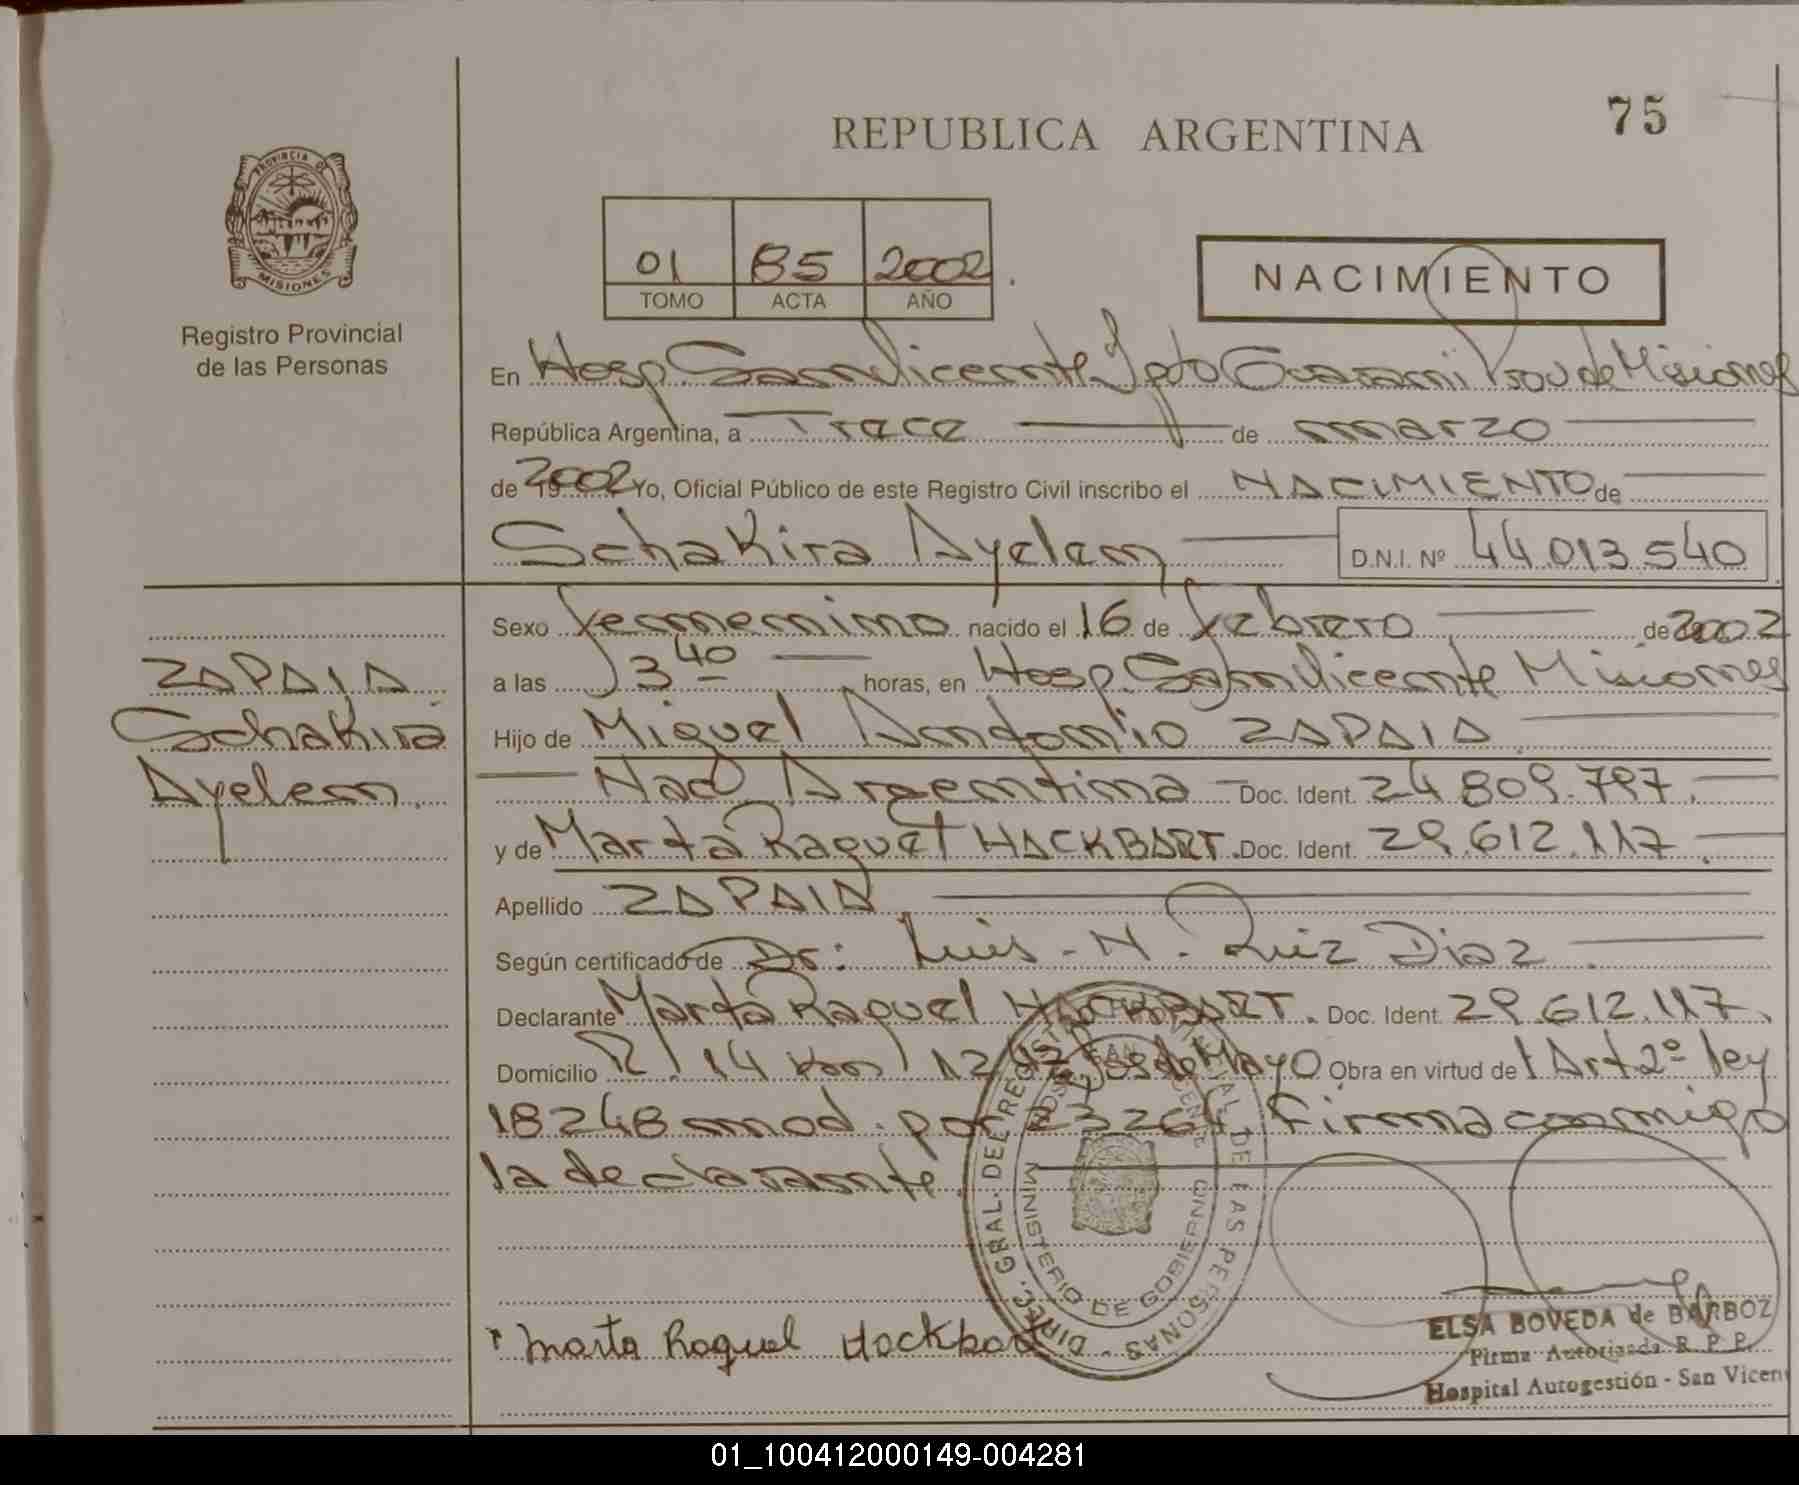 75
REPUBLICA ARGENTINA
PROVINCIA DE
MISIONES
Registro Provincial
de las Personas
01 85 2002
TOMO ACTA AÑO
NACIMIENTO
En Hosp San Vicente Dpto Guarami Prov de Misiones
República Argentina, a Trece de marzo
de 2002 Yo, Oficial Público de este Registro Civil inscribo el NACIMIENTO de
Schakira Ayelen D.N.I. Nº 44.013.540
Sexo femenino nacido el 16 de febrero de 2002
a las 3 40 horas, en Hosp. San Vicente Misiones
Hijo de Miguel Antonio ZAPAIA
Nac Argentina Doc. Ident. 24.809.797.
y de Marta Raquel HACKBART. Doc. Ident. 29.612.117.
Apellido ZAPAIA
Según certificado de Dr: Luis - N. Ruiz Diaz
Declarante Marta Raquel HACKBART. Doc. Ident. 29.612.117.
Domicilio R. 14 Km 12 de Mayo Obra en virtud del Art 2º ley
18248 mod. por 23264. Firma conmigo
la declarante.
ZAPAIA
Schakira
Ayelen.
DIREC. GRAL. DE REGISTRO PROVINCIAL DE LAS PERSONAS
MINISTERIO DE GOBIERNO
Marta Raquel Hackbart
ELSA BOVEDA de BARBOZ
Firma Autorizada R. P. P.
Hospital Autogestión - San Vicen
01_100412000149-004281